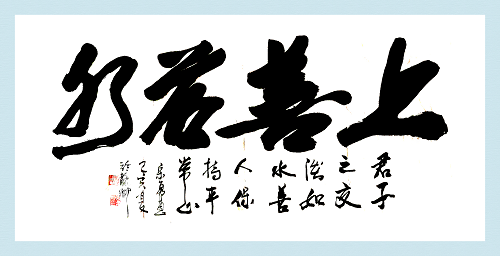 上善若水
君子
之交
淡如
水善
人保
持平
常心